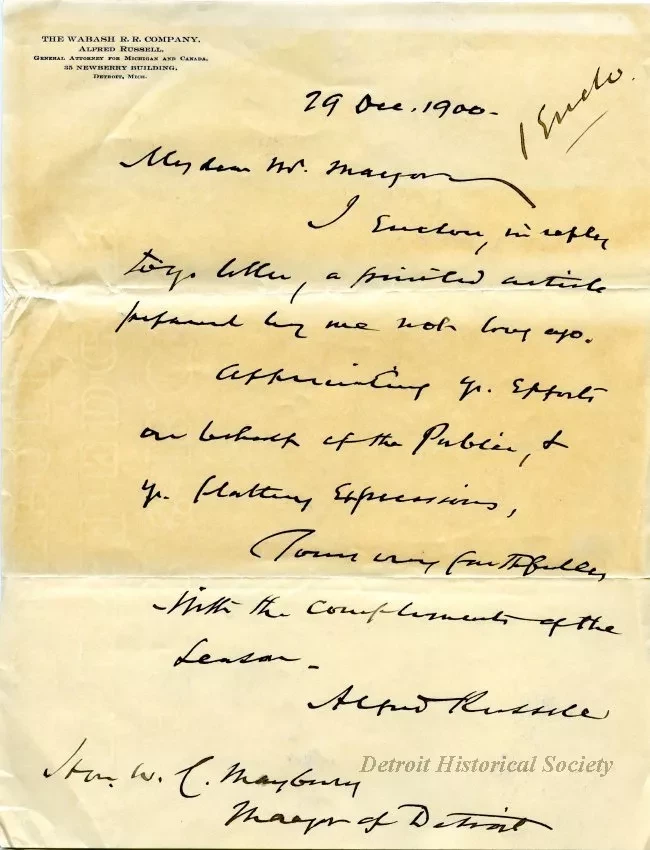 THE WABASH R. R. COMPANY.
ALFRED RUSSELL,
GENERAL ATTORNEY FOR MICHIGAN AND CANADA,
35 NEWBERRY BUILDING,
DETROIT, MICH.
29 Dec. 1900.
1 Enclo.
My dear Mr. Mayor
I Enclose, in reply
to yr. letter, a printed article
prepared by me not long ago.
Appreciating yr. Efforts
on behalf of the Public, &
yr. flattering Expressions,
Yours very faithfully
With the compliments of the
Season.
Alfred Russell
Detroit Historical Society
Hon. W. C. Maybury
Mayor of Detroit